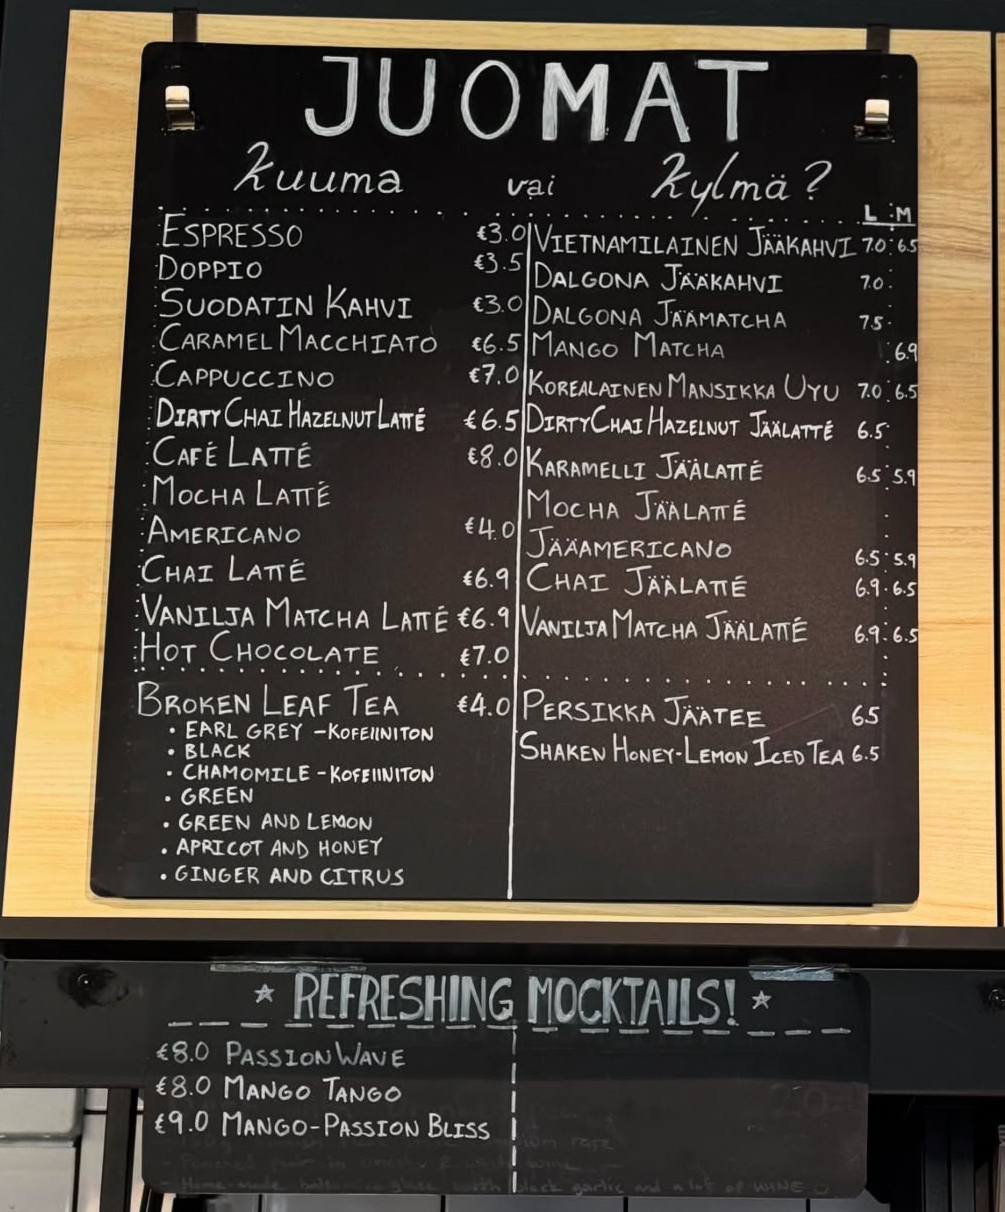 JUOMAT
Kuuma vai Kylmä?
L M
ESPRESSO €3.0
DOPPIO €3.5
SUODATIN KAHVI €3.0
CARAMEL MACCHIATO €6.5
CAPPUCCINO €7.0
DIRTY CHAI HAZELNUT LATTÉ €6.5
CAFÉ LATTÉ €8.0
MOCHA LATTÉ
AMERICANO €4.0
CHAI LATTÉ €6.9
VANILJA MATCHA LATTÉ €6.9
HOT CHOCOLATE €7.0
BROKEN LEAF TEA €4.0
• EARL GREY - KOFEIINITON
• BLACK
• CHAMOMILE - KOFEIINITON
• GREEN
• GREEN AND LEMON
• APRICOT AND HONEY
• GINGER AND CITRUS
VIETNAMILAINEN JÄÄKAHVI 7.0 6.5
DALGONA JÄÄKAHVI 7.0
DALGONA JÄÄMATCHA 7.5
MANGO MATCHA 6.9
KOREALAINEN MANSIKKA UYU 7.0 6.5
DIRTY CHAI HAZELNUT JÄÄLATTÉ 6.5
KARAMELLI JÄÄLATTÉ 6.5 5.9
MOCHA JÄÄLATTÉ
JÄÄAMERICANO 6.5 5.9
CHAI JÄÄLATTÉ 6.9 6.5
VANILJA MATCHA JÄÄLATTÉ 6.9 6.5
PERSIKKA JÄÄTEE 6.5
SHAKEN HONEY-LEMON ICED TEA 6.5
★ REFRESHING MOCKTAILS! ★
€8.0 PASSION WAVE
€8.0 MANGO TANGO
€9.0 MANGO-PASSION BLISS
black garlic and a lot of WINE